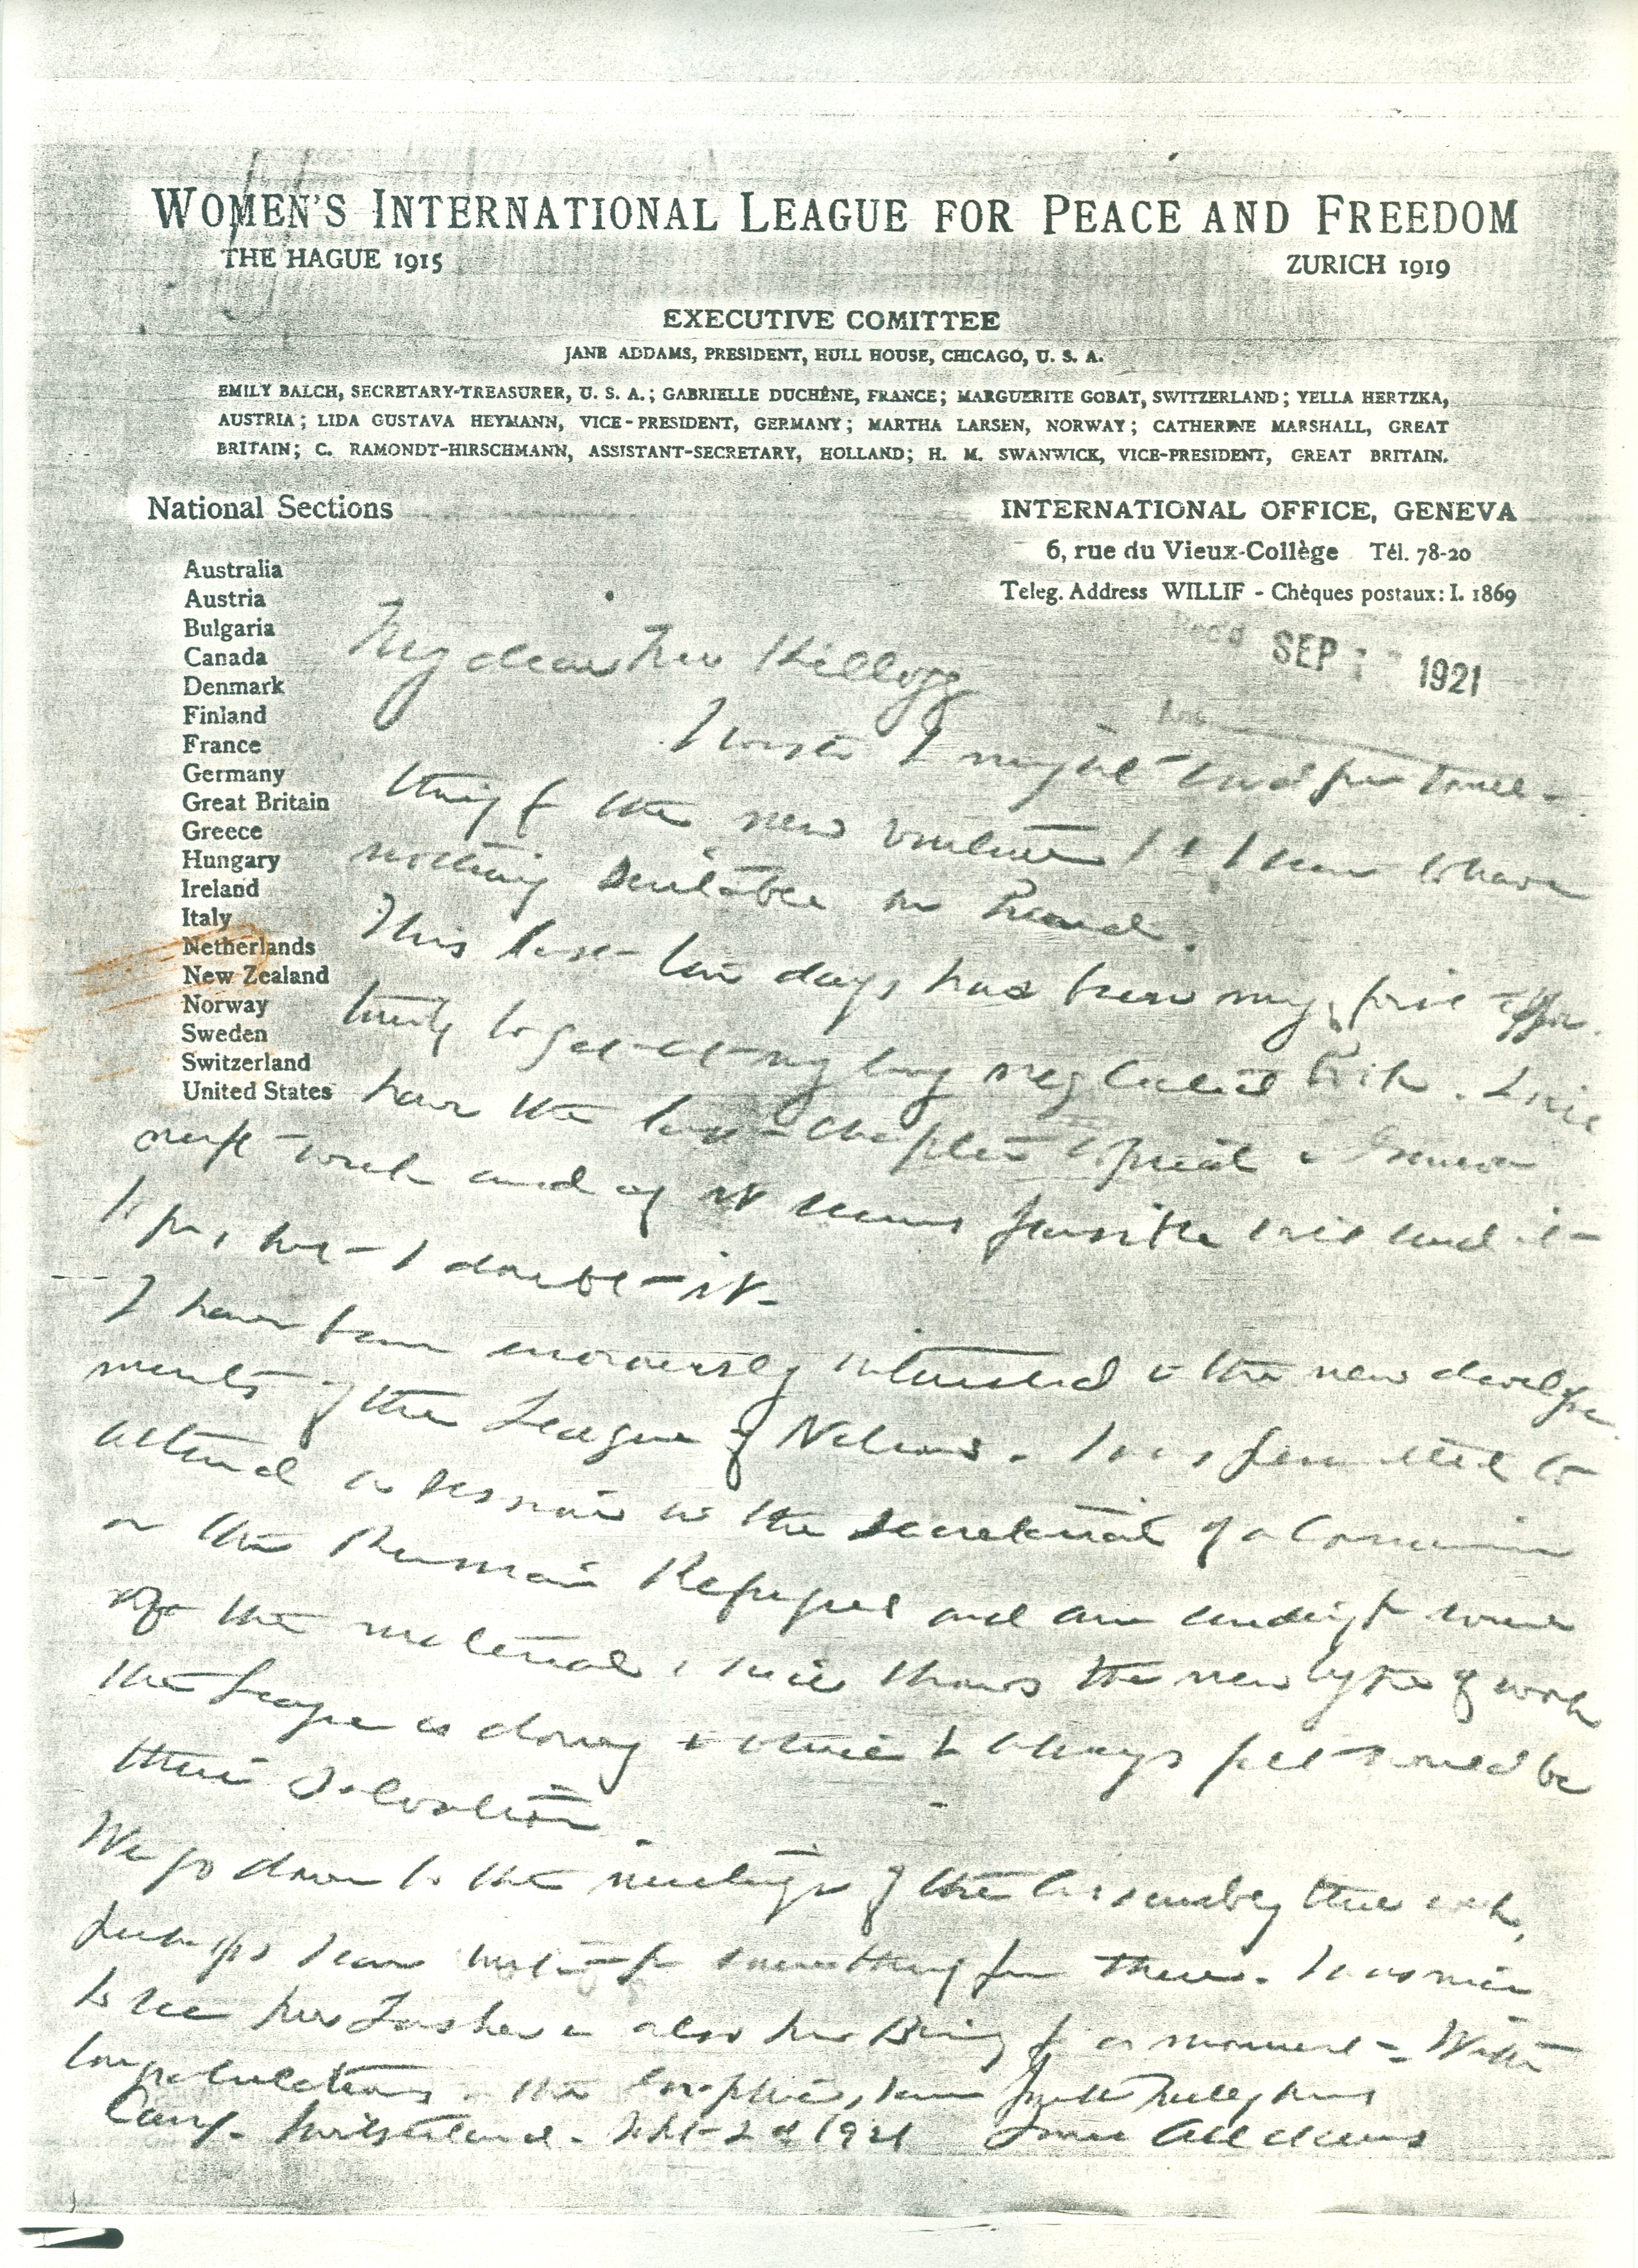 WOMEN'S INTERNATIONAL LEAGUE FOR PEACE AND FREEDOM
THE HAGUE 1915
ZURICH 1919
EXECUTIVE COMITTEE
JANE ADDAMS, PRESIDENT, HULL HOUSE, CHICAGO, U. S. A.
EMILY BALCH, SECRETARY-TREASURER, U. S. A.; GABRIELLE DUCHÊNE, FRANCE; MARGUERITE GOBAT, SWITZERLAND; YELLA HERTZKA,
AUSTRIA; LIDA GUSTAVA HEYMANN, VICE-PRESIDENT, GERMANY; MARTHA LARSEN, NORWAY; CATHERINE MARSHALL, GREAT
BRITAIN; C. RAMONDT-HIRSCHMANN, ASSISTANT-SECRETARY, HOLLAND; H. M. SWANWICK, VICE-PRESIDENT, GREAT BRITAIN.
National Sections
Australia
Austria
Bulgaria
Canada
Denmark
Finland
France
Germany
Great Britain
Greece
Hungary
Ireland
Italy
Netherlands
New Zealand
Norway
Sweden
Switzerland
United States
INTERNATIONAL OFFICE, GENEVA
6, rue du Vieux-Collège Tél. 78-20
Teleg. Address WILLIF - Chèques postaux: I. 1869
Rec'd SEP 1921
Ans
My dear Mr Kellogg
I wish I might send you some-
thing for the new venture I seem to have
nothing suitable on hand.
This last ten days has been my first oppor-
tunity to get at my long neglected book. I will
have the last chapter in Geneva
next week and if it seems possible will send it
to you but I doubt it
I have been enormously interested in the new develop-
ments of the League of Nations. I was permitted to
attend a session in the secretariat of a Commission
on the Russian Refugees and am sending you some
of the material which shows the new type of work
the League is doing & which I always felt would be
their salvation
We go down to the meetings of the Assembly this week,
perhaps I can write you something from there. It was nice
to see Mr Lasker & also Mr Bing for a moment - With
congratulations on the Graphic, I am faithfully yours
Caux, Switzerland. Sept 2d 1921 Jane Addams